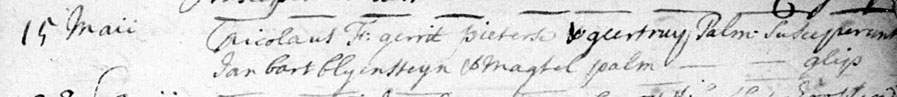 15 Maii Nicolaus F: gerrit pieterse & geertruij Palm. Susceperunt
Jan bart blyensteyn & Magtel palm — — glip